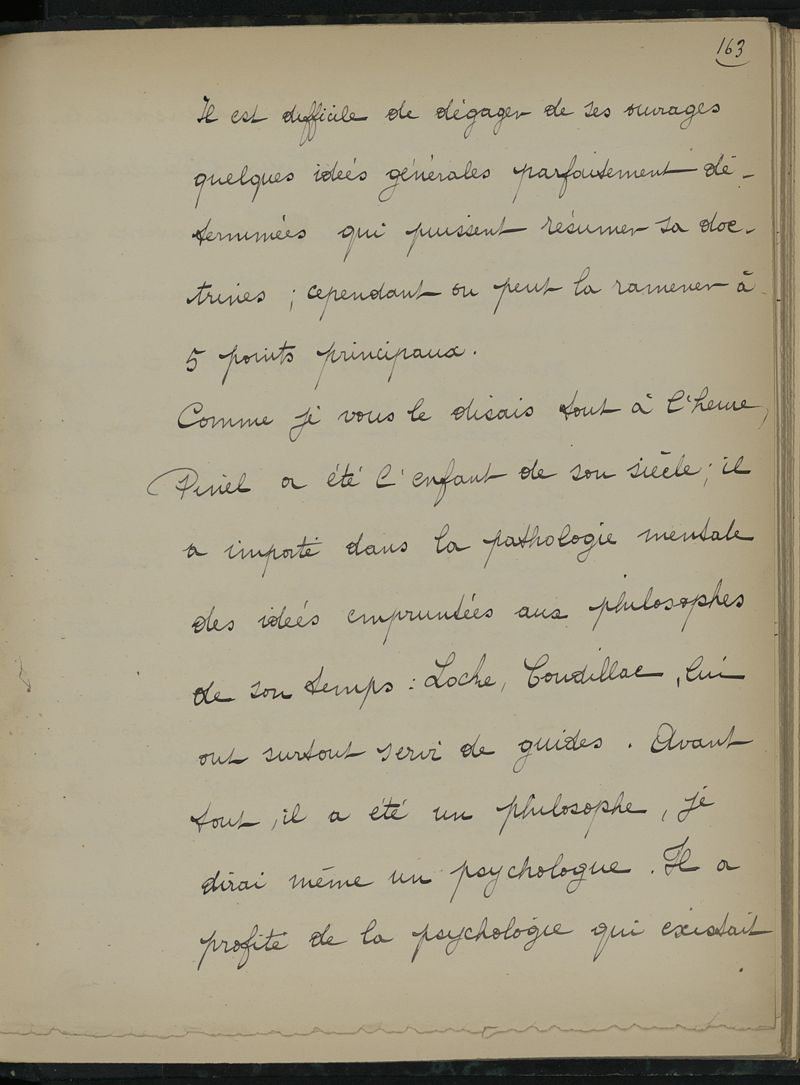 163
Il est difficile de dégager de ses ouvrages
quelques idées générales parfaitement dé-
terminées qui puissent résumer sa doc-
trines ; cependant on peut la ramener à
5 points principaux.
Comme je vous le disais tout à l'heure,
Pinel a été l'enfant de son siècle ; il
a importé dans la pathologie mentale
des idées empruntées aux philosophes
de son temps : Locke, Condillac, lui
ont surtout servi de guides. Avant
tout, il a été un philosophe, je
dirai même un psychologue. Il a
profité de la psychologie qui existait